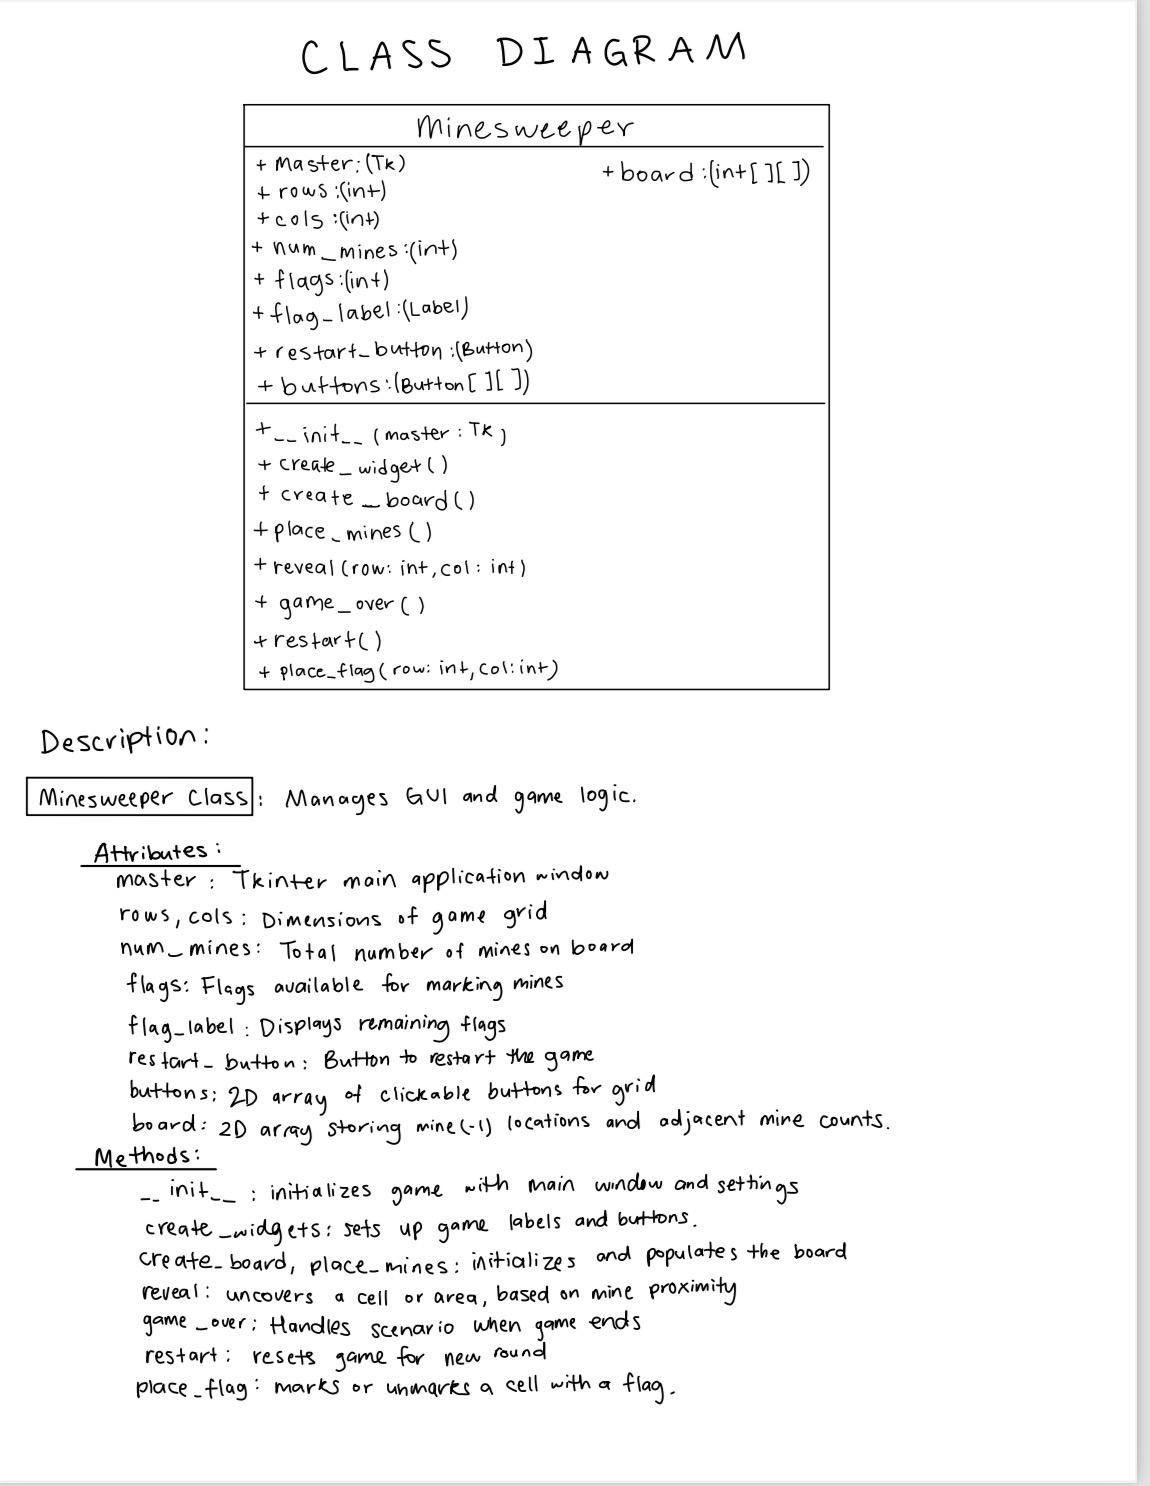 CLASS DIAGRAM
Minesweeper
+ Master:(Tk)
+ rows:(int)
+ cols:(int)
+ num_mines:(int)
+ flags:(int)
+ flag_label:(Label)
+ restart_button:(Button)
+ buttons:(Button[][])
+ board:(int[][])
+ __init__ (master: Tk)
+ create_widget()
+ create_board()
+ place_mines()
+ reveal(row: int, col: int)
+ game_over()
+ restart()
+ place_flag(row: int, col: int)
Description:
Minesweeper Class: Manages GUI and game logic.
Attributes:
master: Tkinter main application window
rows, cols: Dimensions of game grid
num_mines: Total number of mines on board
flags: Flags available for marking mines
flag_label: Displays remaining flags
restart_button: Button to restart the game
buttons: 2D array of clickable buttons for grid
board: 2D array storing mine(-1) locations and adjacent mine counts.
Methods:
__init__: initializes game with main window and settings
create_widgets: sets up game labels and buttons.
create_board, place_mines: initializes and populates the board
reveal: uncovers a cell or area, based on mine proximity
game_over: Handles scenario when game ends
restart: resets game for new round
place_flag: marks or unmarks a cell with a flag.